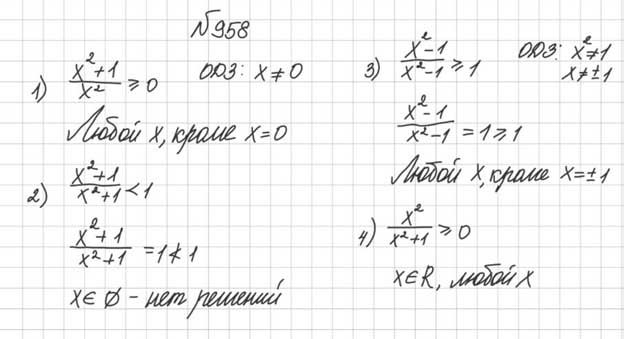 №958
1) (x²+1)/x² ≥ 0 ОДЗ: x ≠ 0
Любой x, кроме x=0
2) (x²+1)/(x²+1) < 1
(x²+1)/(x²+1) = 1 ≮ 1
x ∈ ∅ - нет решений
3) (x²-1)/(x²-1) ≥ 1 ОДЗ: x² ≠ 1
x ≠ ±1
(x²-1)/(x²-1) = 1 ≥ 1
Любой x, кроме x = ±1
4) x²/(x²+1) ≥ 0
x ∈ R, любой x